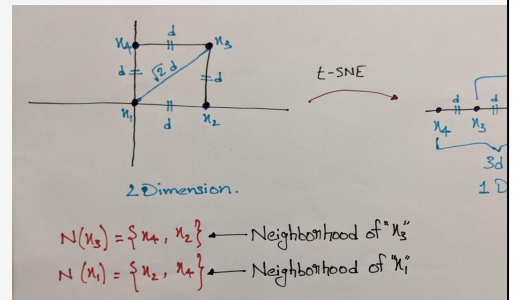 x4 d x3
d √2 d d
x1 d x2
t-SNE
d d
x4 x3
3d
1 D
2 Dimension.
N(x3) = {x4, x2} ← Neighborhood of "x3"
N(x1) = {x2, x4} ← Neighborhood of "x1"